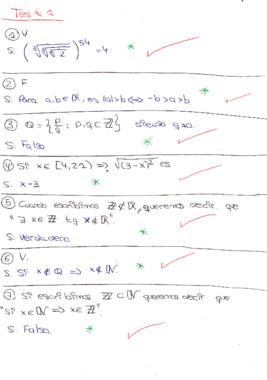 Test 1
① V.
S: (∛√∛√2)^54 = 4 *
② F.
S: Para a,b∈ℝ, es |a|>b ⟺ -b>a>b *
③ Q = {p/q : p,q∈ℤ} siendo q≠0.
S: Falso *
④ Si x∈[4,21) ⟹ √(3-x)² es
S: x-3 *
⑤ Cuando escribimos ℤ⊄ℝ, queremos decir que
"∃ x∈ℤ tq x∉ℝ" *
S: Verdadero.
⑥ V.
S: Si x∉Q ⟹ x∉ℕ. *
⑦ Si escribimos ℤ⊂ℕ queremos decir que
"Si x∈ℕ ⟹ x∈ℤ".
S: Falso. *